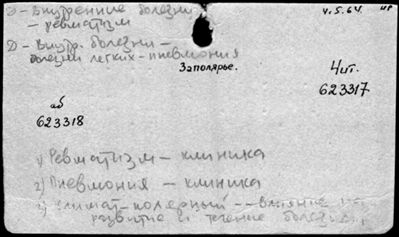 Э - Внутренние болезни
- ревматизм
4.5.64.
Д - Внутр. болезни -
болезни легких - пневмония
Заполярье.
Чит.
623317
аб
623318
1) Ревматизм - клиника
2) Пневмония - клиника
3) Климат - полярный -- влияние на
развитие и течение болезни